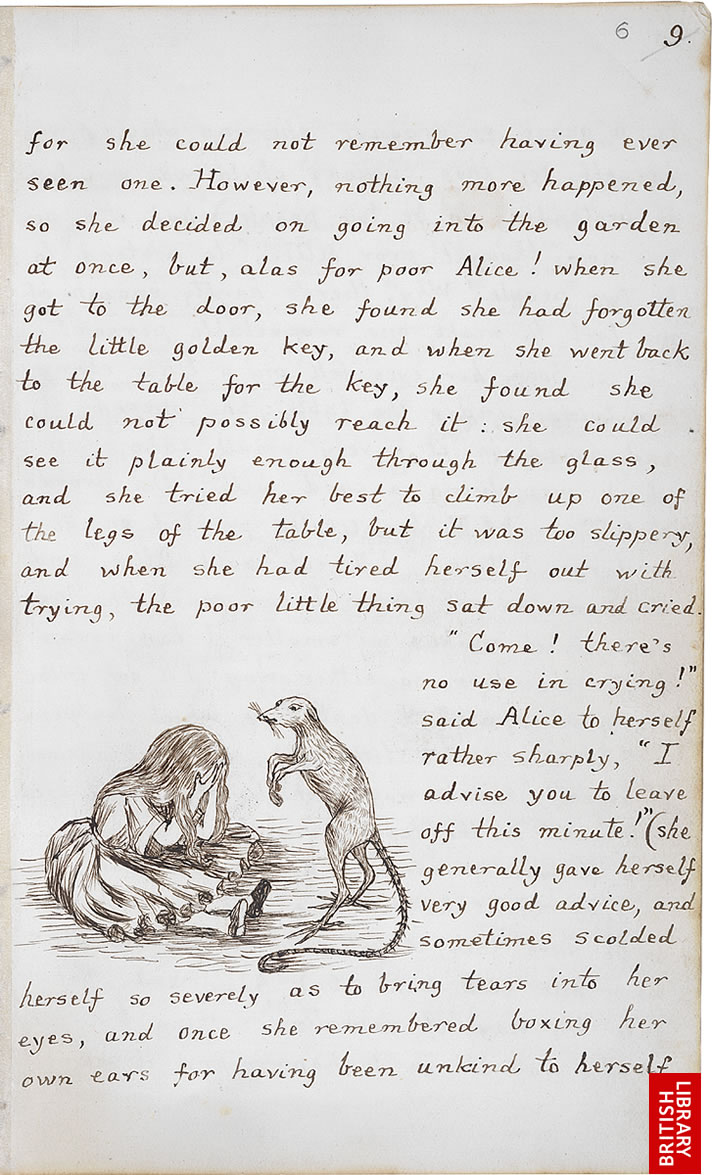 6 9.
for she could not remember having ever
seen one. However, nothing more happened,
so she decided on going into the garden
at once, but, alas for poor Alice! when she
got to the door, she found she had forgotten
the little golden key, and when she went back
to the table for the key, she found she
could not possibly reach it: she could
see it plainly enough through the glass,
and she tried her best to climb up one of
the legs of the table, but it was too slippery,
and when she had tired herself out with
trying, the poor little thing sat down and cried.
"Come! there's
no use in crying!"
said Alice to herself
rather sharply, "I
advise you to leave
off this minute!" (she
generally gave herself
very good advice, and
sometimes scolded
herself so severely as to bring tears into her
eyes, and once she remembered boxing her
own ears for having been unkind to herself
BRITISH
LIBRARY